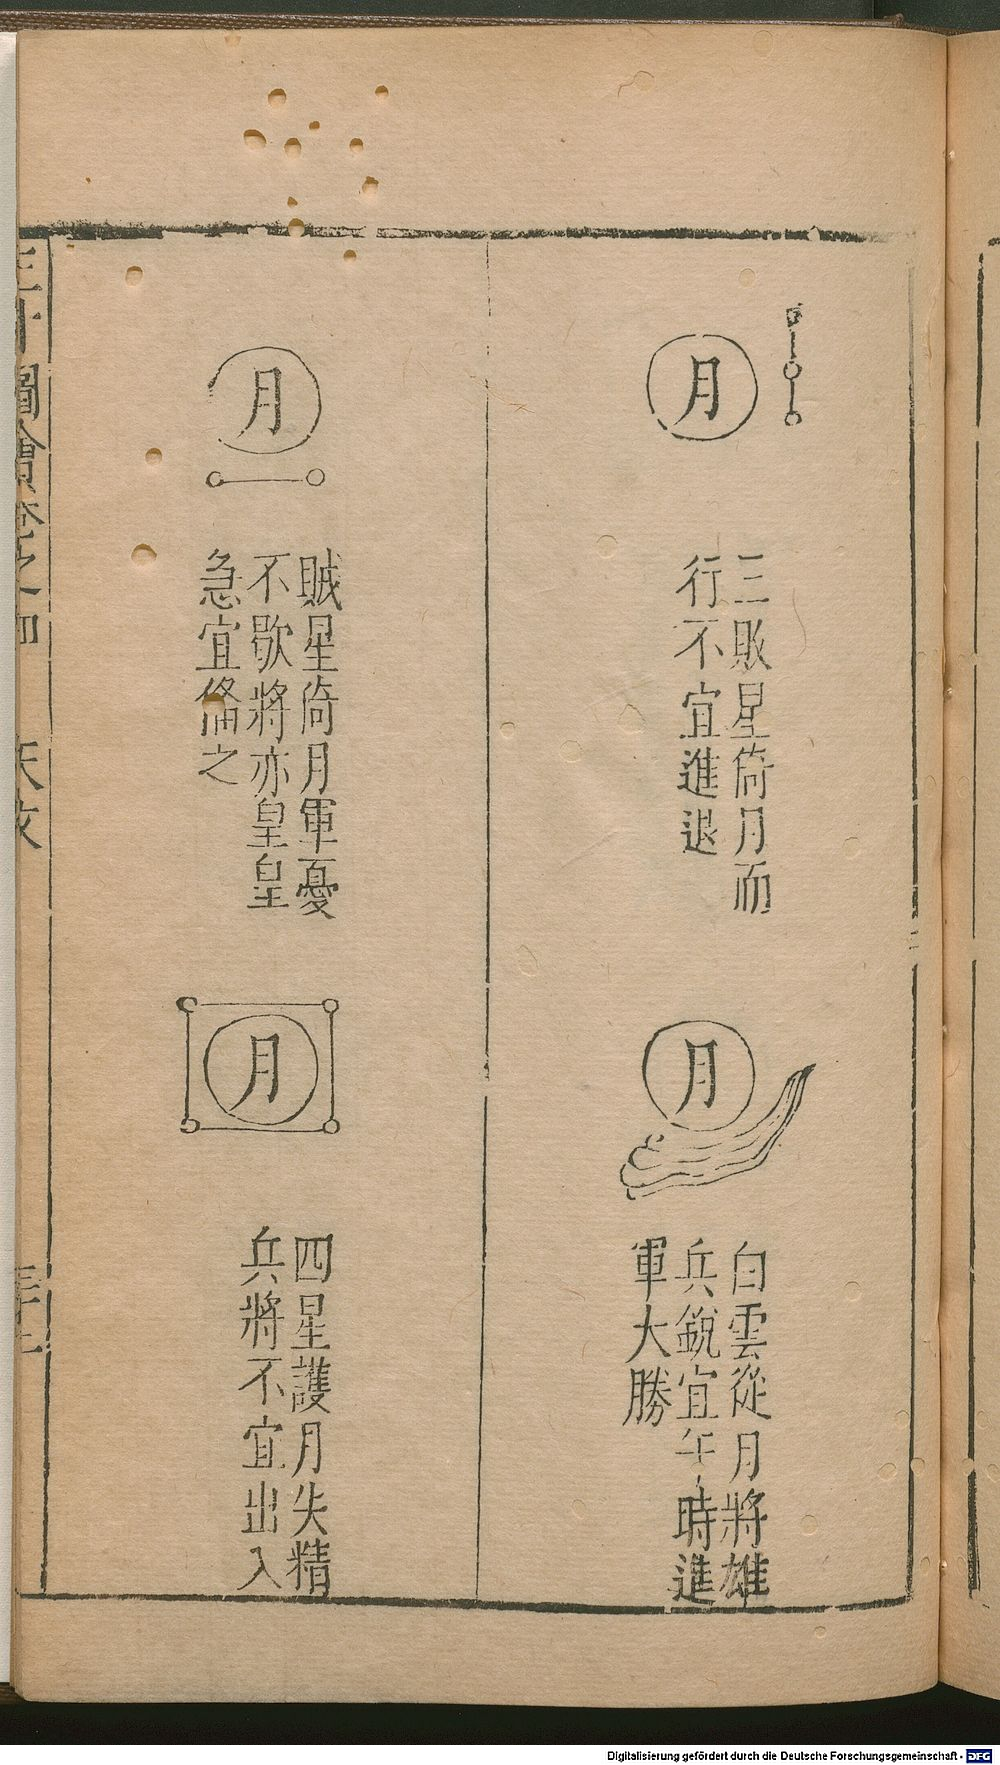 月
三敗星倚月而
行不宜進退
月
白雲從月將雄
兵銳宜午時進
軍大勝
月
賊星倚月軍憂
不歇將亦皇皇
急宜俻之
月
四星護月失精
兵將不宜出入
三才圖會卷之四 天文
Digitalisierung gefördert durch die Deutsche Forschungsgemeinschaft - DFG